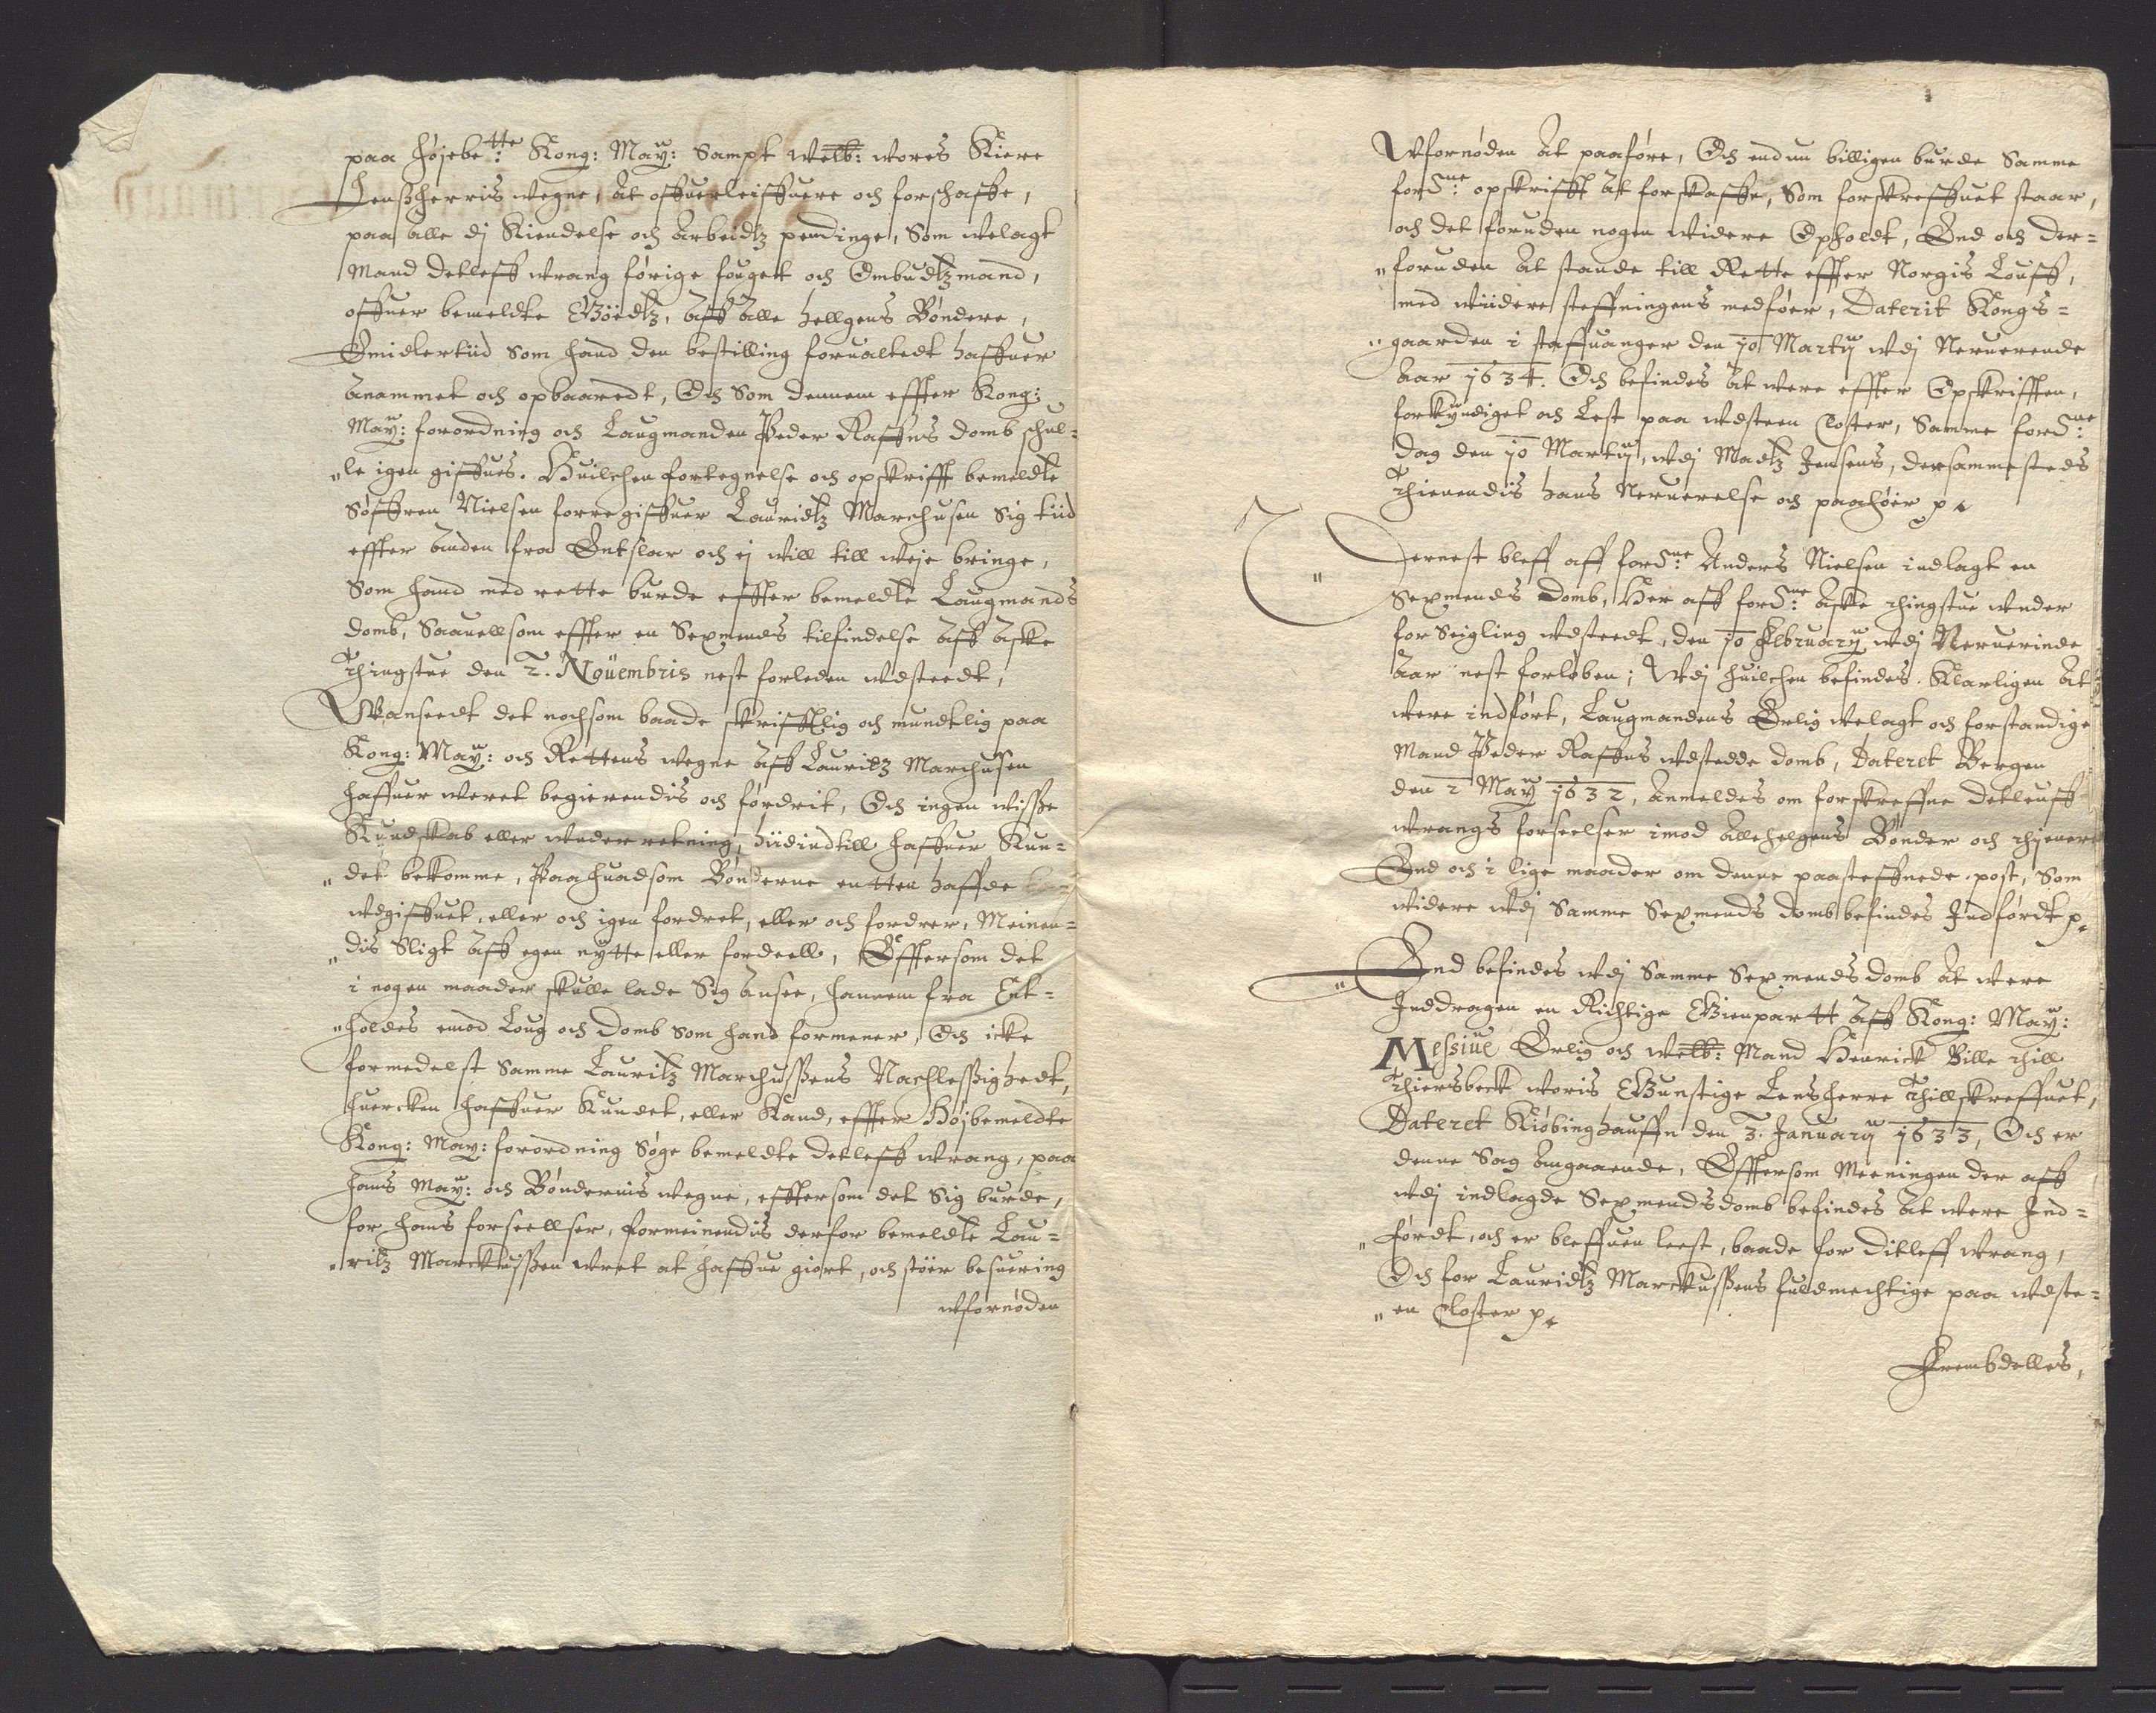 paa højebe:tte Kong: May: Sampt Welb: wores Kiere
Lensherris wegne, at offuerleiffuere och forschaffe,
paa alle dj Kiendelse och Arbeidtz pendinge, Som welagt
Mand Detleff Wrang förige fougett och Ombudtzmand,
offuer bemeldte Göedtz, aff alle hellgens Bönder,
Emidlertiid Som hand den bestilling forualltedt haffuer
Anammet och opbaaredt, Och Som dennem effter Kong:
May: forordning och Laugmanden Peder Raffns domb schul-
"le igen giffues. Huilchen fortegnelse och opskrifft bemeldte
Söffren Nielsen forregiffuer Lauridtz Marchusen Sig tiid
effter anden fra Entslar och ej will till weje bringe,
Som hand med rette burde effter bemeldte Laugmands
domb, Saauellsom effter en Sexmends tilfindelse aff Aske
Thingstue den 2. Nouembris nest forleden wdsteedt,
Wanseedt det nochsom baade skrifftlig och mundtlig paa
Kong: May: och Rettens wegne aff Lauritz Marchusen
haffuer weret begierendis och fordrit, Och ingen wisse
Kundskab eller wnderretning, hiidindtill haffuer Kun-
"det bekomme, Paa huadsom Bönderne entten haffde
wdgiffuet, eller och igen fordret, eller och fordrer, Meinen-
"dis Sligt aff egen nytte eller fordeell, Effttersom det
i nogen maader skulle lade Sig ansee, hannem fra Ent-
"holdes emod Loug och domb Som hand formener, Och icke
formedelst Samme Lauritz Marchussens Nachlessighedt,
huercken haffuer Kundet, eller Kand, effter Höjbemeldte
Kong: May: forordning Söge bemeldte Detleff Wrang, paa
hans May: och Bönderniis wegne, efftersom det Sig burde,
for hans forseellser, formeinendis derfor bemeldte Lau-
"ritz Marckussen wret at haffue giort, och stöer besuering
wfornöden
Wfornöden at paaföre, Och endnu billigen burde Samme
ford:ne opskrifft at forskaffe, Som forskreffuet staar,
och det foruden nogen widere Opholdt, End och der-
"foruden at stande till Rette effter Norgis Louff,
med widere steffningens medföer, Daterit Kongs-
"gaarden i Staffuanger den 10 Martij wdj Neruerende
Aar 1634. Och befindes at were effter Opskrifften,
forkyndiget och Lest paa Wdsteen Closter, Samme ford:ne
Dag den 10 Martij, wdj Madtz Jensens, dersammesteds
Thienendis hans Neruerelse och paahöer p.
"Dernest bleff aff ford:ne Anders Nielsen indlagt en
Sexmends Domb, Her aff ford:ne Aske thingstue wnder
forseigling wdsteedt, den 10 Februarij wdj Neruerinde
Aar nest forleben; Wdj huilchen befindes Klarligen at
were indfört, Laugmandens Erlig welagt och forstandige
Mand Peder Raffns wdstedde domb, Dateret Bergen
den 2 May 1632, Anmeldes om forskreffne Detleuff
Wrangs forseelser imod Allehelgens Bönder och thienere
End och i lige maader om denne paasteffnede post, Som
widere wdj Samme Sexmends domb befindes Indfördt p.
"End befindes wdj Samme Sexmends domb at were
Inddragen en Richtige Gienpartt aff Kong: May:
Messiue Erlig och Welb: Mand Henrick Bille thill
Thiersbeck woris Gunstige Lensherre Thillskreffuet,
Dateret Kiöbinghauffn den 3. Januarij 1633, Och er
denne Sag Angaaende, Effttersom Meeningen der aff
wdj indlagde Sexmendsdomb befindes at were Ind-
"fördt, och er bleffuen leest, baade for Ditleff Wrang,
Och for Lauridtz Marckussens fuldmechtige paa Wdste-
"en Closter p.
Frembdelles,